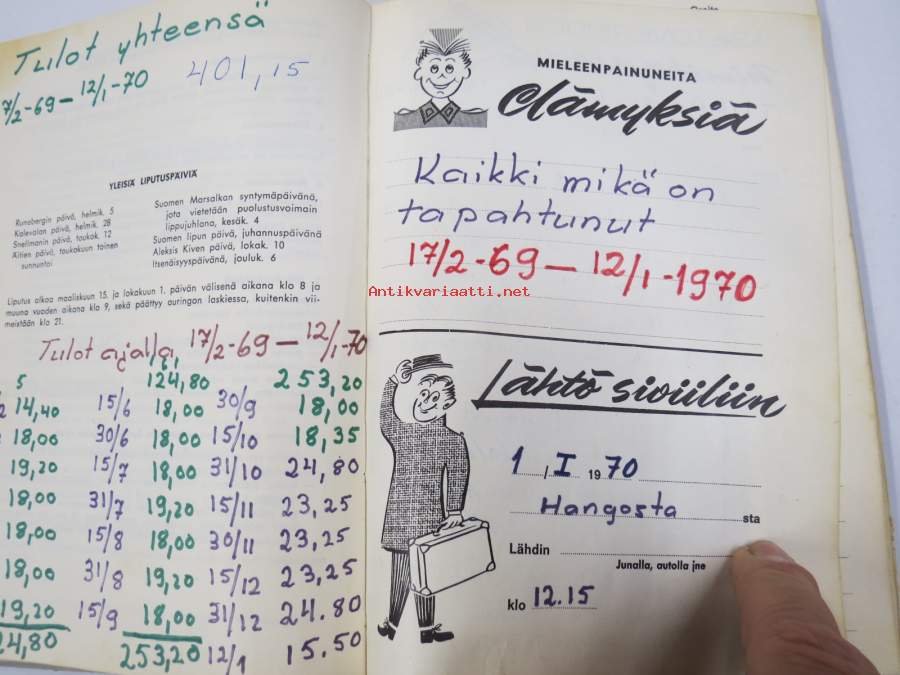 Tulot yhteensä
17/2-69 — 12/1-70 401,15
YLEISIÄ LIPUTUSPÄIVIÄ
Runebergin päivä, helmik. 5
Kalevalan päivä, helmik. 28
Snellmanin päivä, toukok. 12
Äitien päivä, toukokuun toinen
sunnuntai
Suomen Marsalkan syntymäpäivänä,
jota vietetään puolustusvoimain
lippujuhlana, kesäk. 4
Suomen lipun päivä, juhannuspäivänä
Aleksis Kiven päivä, lokak. 10
Itsenäisyyspäivänä, jouluk. 6
Liputus alkaa maaliskuun 15. ja lokakuun 1. päivän välisenä aikana klo 8 ja
muuna vuoden aikana klo 9, sekä päättyy auringon laskiessa, kuitenkin vii-
meistään klo 21.
Tulot ajalla 17/2-69 — 12/1-70
5 124,80 253,20
14,40 15/6 18,00 30/9 18,00
18,00 30/6 18,00 15/10 18,35
19,20 15/7 18,00 31/10 24,80
18,00 31/7 19,20 15/11 23,25
18,00 15/8 18,00 30/11 23,25
18,00 31/8 19,20 15/12 23,25
19,20 15/9 18,00 31/12 24.80
24,80 253,20 12/1 15.50
MIELEENPAINUNEITA
Elämyksiä
Kaikki mikä on
tapahtunut
17/2-69 — 12/1-1970
Antikvariaatti.net
Lähtö siviiliin
1 / I 1970
Hangosta sta
Lähdin
Junalla, autolla jne
klo 12.15